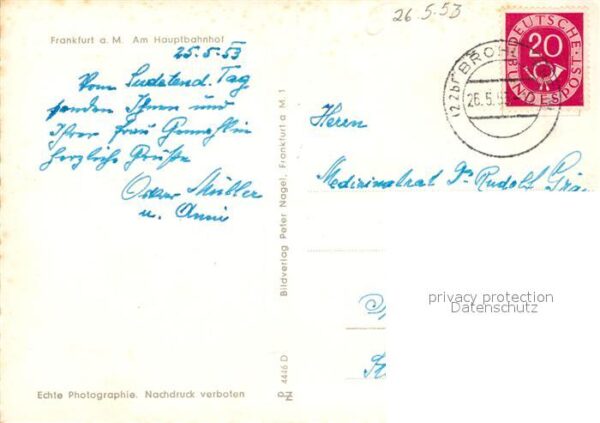 26.5.53
Frankfurt a. M. Am Hauptbahnhof
25.5.53
Vom Sudetend. Tag
senden Ihnen und
Ihrer Frau Gemahlin
herzliche Grüße
Oskar Müller
u. Anni
Echte Photographie. Nachdruck verboten
Bildverlag Peter Nagel, Frankfurt a M. 1
4446 D
DEUTSCHE
BUNDESPOST
20
(22b) BROHL
26.5.53
Herrn
Medizinalrat Dr. Rudolf
privacy protection
Datenschutz